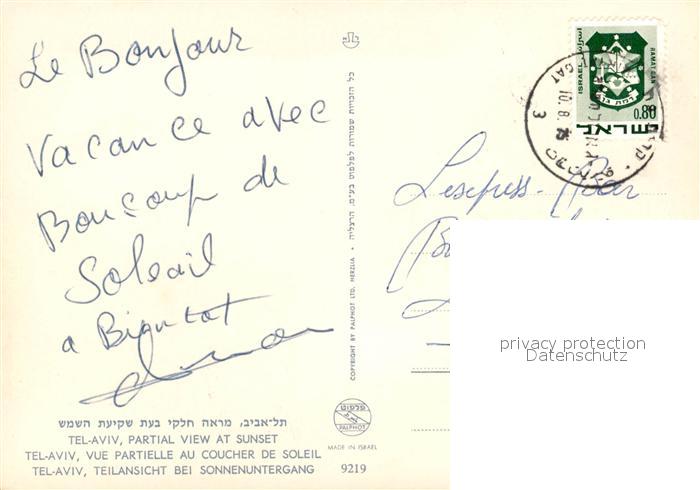 Le Bonjour
Vacance avec
Boucoup de
Soleail
a Biantot
תל־אביב, מראה חלקי בעת שקיעת השמש
TEL-AVIV, PARTIAL VIEW AT SUNSET
TEL-AVIV, VUE PARTIELLE AU COUCHER DE SOLEIL
TEL-AVIV, TEILANSICHT BEI SONNENUNTERGANG
פלפוט
PALPHOT
MADE IN ISRAEL
9219
COPYRIGHT BY PALPHOT LTD, HERZLIA • כל הזכויות שמורות לפלפוט בע״מ, הרצליה
ISRAEL
RAMAT GAN
רמת גן
0.80
ישראל
GAT
10.8.
3
privacy protection
Datenschutz